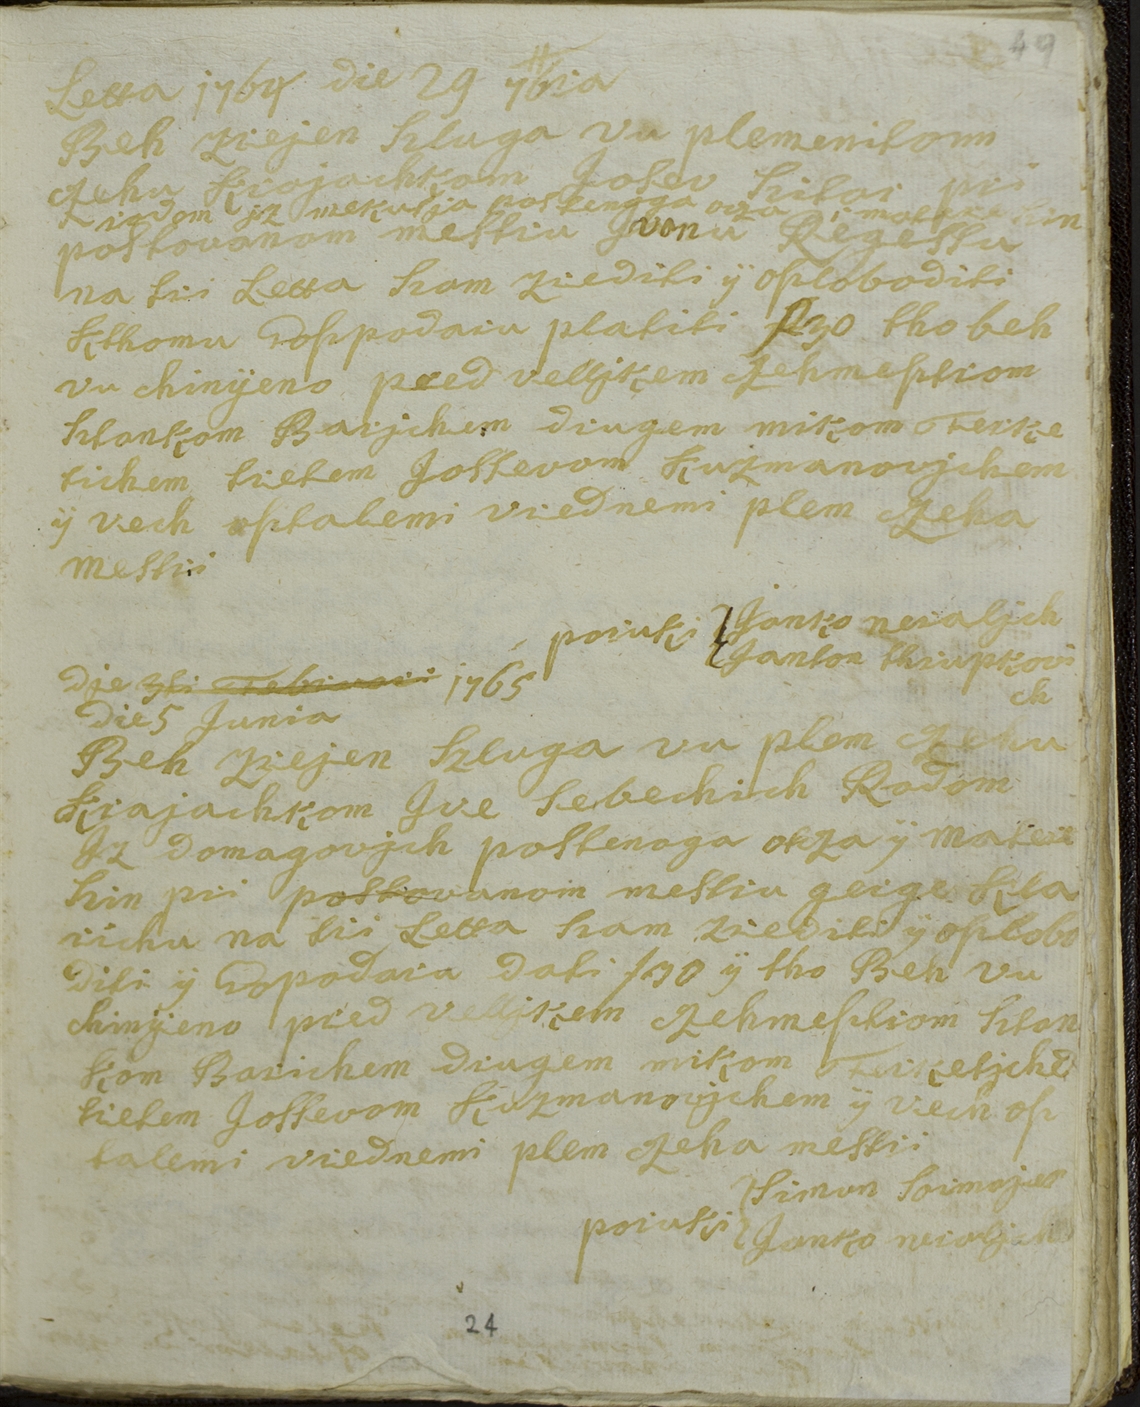 49
Letta 1764 die 29 7bria
Beh zriejen szluga vu plemenitom
czehu krajachkom Josev pri
rodom iz mekusja postenoga ocza i matere szin
postovanom mestru Jvanu Regessu
na tri Letta szam zrediti ÿ oszloboditi
kthomu Goszpodaru platiti f 30 tho beh
vu chinÿeno pred velljkem czehmesztrom
sztankom Barjchem drugem mikom Ferke
tichem tretem Jossevom Kuzmanovjchem
ÿ vech osztalemi vrednemi plem czeha
mestri
poruki Janko neraljch
Janton thrupkovi
ch
Dje 3ti Februarii 1765
Die 5 Junia
Beh zriejen szluga vu plem czehu
krajachkom Jve sebechich Rodom
Jz domagovjch postenoga otza ÿ mater
szin pri postovanom mestru gerge Kla
richu na trii Letta szam zrediti ÿ oszlobo
diti ÿ Gopodaru dati f 30 ÿ tho Beh vu
chinÿeno pred velljkem czehmesztrom sztan
kom Barichem drugem mikom Ferketjche
tretem Jossevom Kuzmanovjchem ÿ vech osz
talemi vrednemi plem czeha mestri
Simun
poruki Janko neraljch
24